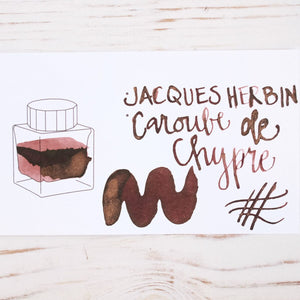 JACQUES HERBIN
Caroube de
Chypre